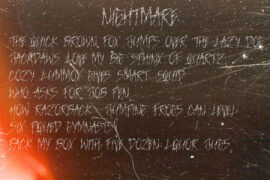 NIGHTMARE
THE QUICK BROWN FOX JUMPS OVER THE LAZY DOG
JACKDAWS LOVE MY BIG SPHINX OF QUARTZ
COZY LUMMOX GIVES SMART SQUID
WHO ASKS FOR JOB PEN
HOW RAZORBACK-JUMPING FROGS CAN LEVEL
SIX PIQUED GYMNASTS
PACK MY BOX WITH FIVE DOZEN LIQUOR JUGS